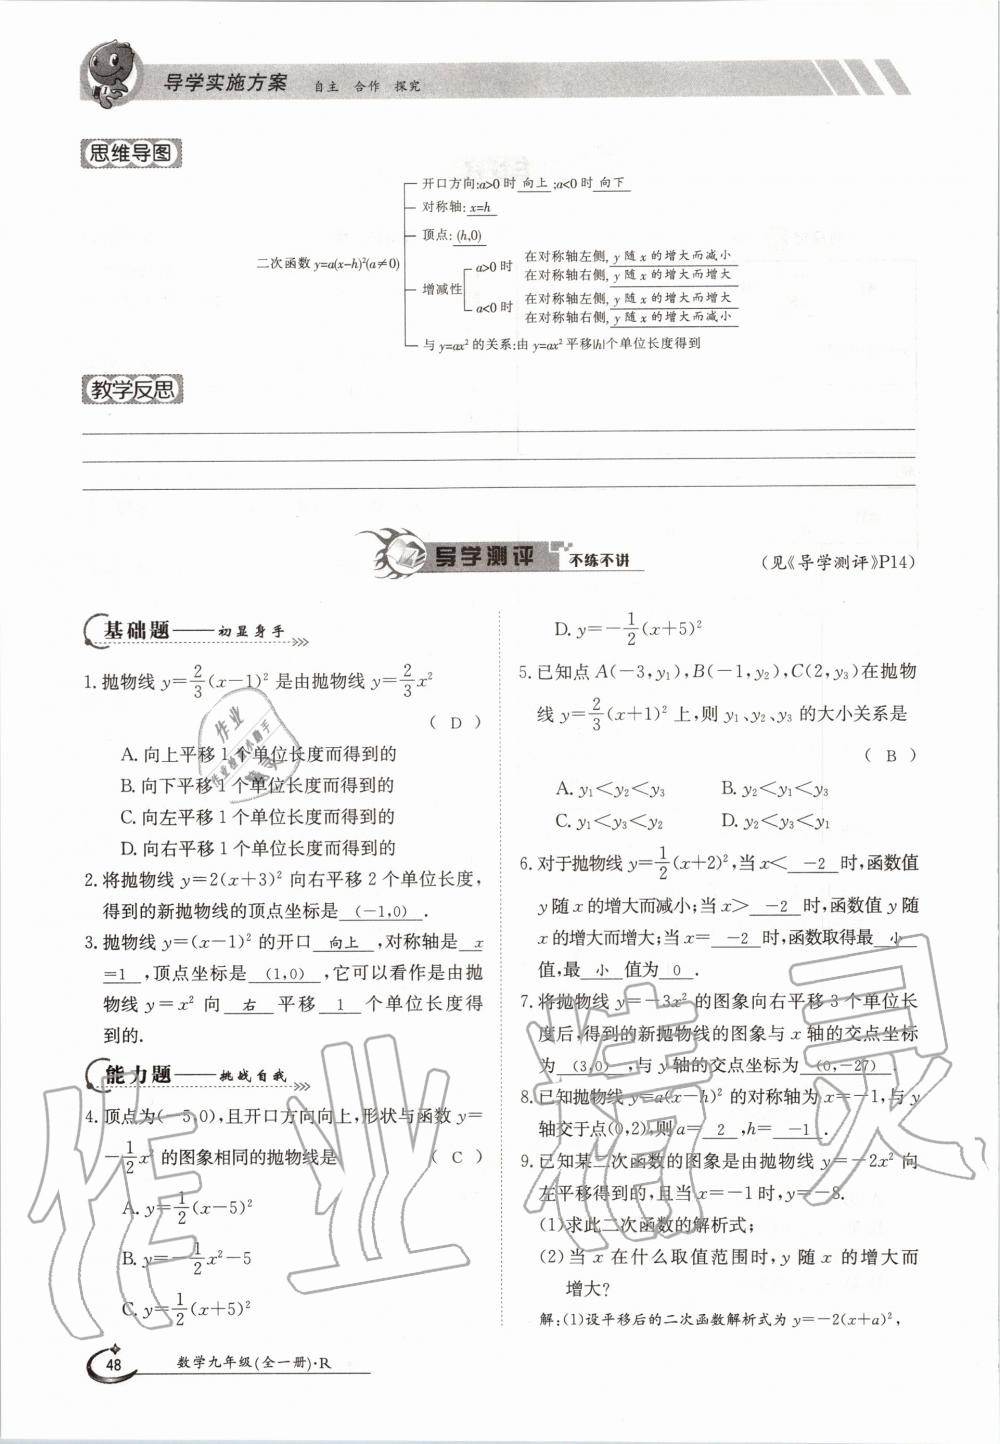 导学实施方案 自主 合作 探究
思维导图
二次函数 y=a(x-h)²(a≠0)
开口方向:a>0 时 向上 ;a<0 时 向下
对称轴: x=h
顶点: (h,0)
增减性
a>0 时
在对称轴左侧, y 随 x 的增大而减小
在对称轴右侧, y 随 x 的增大而增大
a<0 时
在对称轴左侧, y 随 x 的增大而增大
在对称轴右侧, y 随 x 的增大而减小
与 y=ax² 的关系:由 y=ax² 平移|h|个单位长度得到
教学反思
导学测评 不练不讲
(见《导学测评》P14)
基础题——初显身手
1.抛物线 y=2/3(x-1)² 是由抛物线 y=2/3x²
( D )
A.向上平移 1 个单位长度而得到的
B.向下平移 1 个单位长度而得到的
C.向左平移 1 个单位长度而得到的
D.向右平移 1 个单位长度而得到的
2.将抛物线 y=2(x+3)² 向右平移 2 个单位长度,
得到的新抛物线的顶点坐标是 (-1,0) .
3.抛物线 y=(x-1)² 的开口 向上 ,对称轴是 x
=1 ,顶点坐标是 (1,0) ,它可以看作是由抛
物线 y=x² 向 右 平移 1 个单位长度得
到的.
能力题——挑战自我
4.顶点为(-5,0),且开口方向向上,形状与函数 y=
-1/2x² 的图象相同的抛物线是 ( C )
A.y=1/2(x-5)²
B.y=-1/2x²-5
C.y=1/2(x+5)²
D.y=-1/2(x+5)²
5.已知点 A(-3,y₁),B(-1,y₂),C(2,y₃)在抛物
线 y=2/3(x+1)² 上,则 y₁、y₂、y₃ 的大小关系是
( B )
A.y₁<y₂<y₃ B.y₂<y₁<y₃
C.y₁<y₃<y₂ D.y₂<y₃<y₁
6.对于抛物线 y=1/2(x+2)²,当 x< -2 时,函数值
y 随 x 的增大而减小;当 x> -2 时,函数值 y 随
x 的增大而增大;当 x= -2 时,函数取得最 小
值,最 小 值为 0 .
7.将抛物线 y=-3x² 的图象向右平移 3 个单位长
度后,得到的新抛物线的图象与 x 轴的交点坐标
为 (3,0) ,与 y 轴的交点坐标为 (0,-27) .
8.已知抛物线 y=a(x-h)² 的对称轴为 x=-1,与 y
轴交于点(0,2),则 a= 2 ,h= -1 .
9.已知某二次函数的图象是由抛物线 y=-2x² 向
左平移得到的,且当 x=-1 时,y=-8.
(1)求此二次函数的解析式;
(2)当 x 在什么取值范围时,y 随 x 的增大而
增大?
解:(1)设平移后的二次函数解析式为 y=-2(x+a)²,
48 数学九年级(全一册)·R
作业精灵